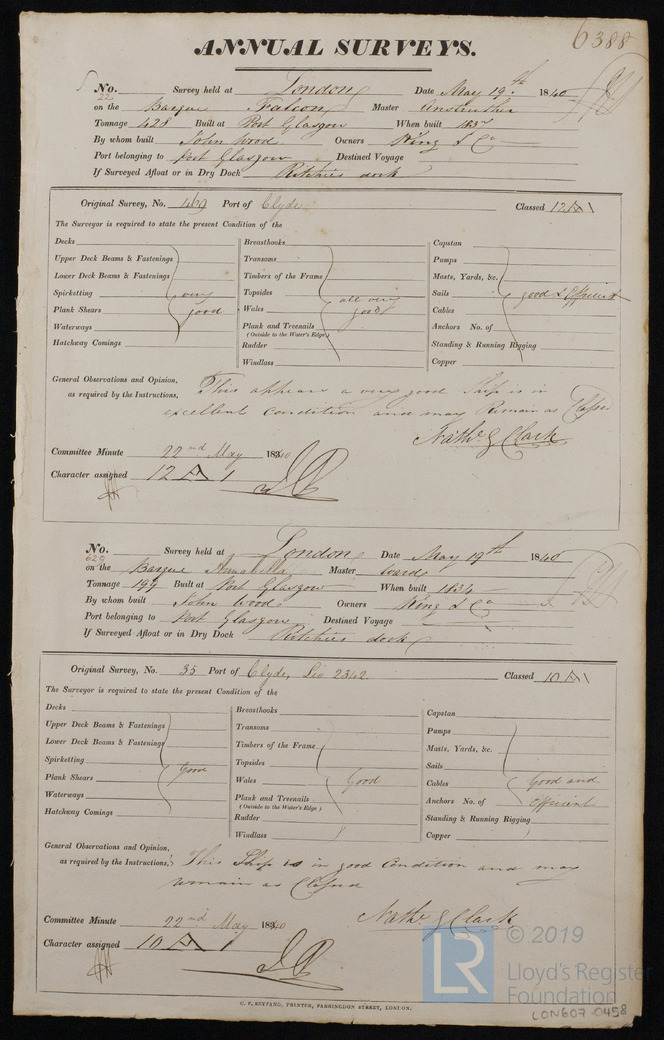 6388
ANNUAL SURVEYS.
No. 22 Survey held at London Date May 19th 1840
on the Barque Falcon Master Anstruther
Tonnage 428 Built at Port Glasgow When built 1837
By whom built John Wood Owners King & Co
Port belonging to Port Glasgow Destined Voyage
If Surveyed Afloat or in Dry Dock Ritchies dock
Original Survey, No. 469 Port of Clyde Classed 12 A 1
The Surveyor is required to state the present Condition of the
Decks Breasthooks Capstan
Upper Deck Beams & Fastenings Transoms Pumps
Lower Deck Beams & Fastenings Timbers of the Frame Masts, Yards, &c.
Spirketting very Topsides all very Sails good & Efficient
Plank Shears good Wales good Cables
Waterways Plank and Treenails Anchors No. of
(Outside to the Water's Edge)
Hatchway Comings Rudder Standing & Running Rigging
Windlass Copper
General Observations and Opinion, This appears a very good Ship is in
as required by the Instructions, excellent condition and may Remain as Classed
Nathl G Clark
Committee Minute 22nd May 1840
Character assigned 12 A 1
No. 629 Survey held at London Date May 19th 1840
on the Barque Annabella Master Ward
Tonnage 199 Built at Port Glasgow When built 1834
By whom built John Wood Owners King & Co
Port belonging to Port Glasgow Destined Voyage
If Surveyed Afloat or in Dry Dock Ritchies dock
Original Survey, No. 35 Port of Clyde, Lio 2342. Classed 10 A 1
The Surveyor is required to state the present Condition of the
Decks Breasthooks Capstan
Upper Deck Beams & Fastenings Transoms Pumps
Lower Deck Beams & Fastenings Timbers of the Frame Masts, Yards, &c.
Spirketting Topsides Sails
Plank Shears Good Wales Good Cables Good and
Waterways Plank and Treenails Anchors No. of Efficient
(Outside to the Water's Edge)
Hatchway Comings Rudder Standing & Running Rigging
Windlass Copper
General Observations and Opinion,
as required by the Instructions, This Ship is in good Condition and may
remain as Classed
Nathl G Clark
Committee Minute 22nd May 1840
Character assigned 10 A 1
C. F. SEYFANG, PRINTER, FARRINGDON STREET, LONDON.
LR © 2019
Lloyd's Register
Foundation
LON607-0458